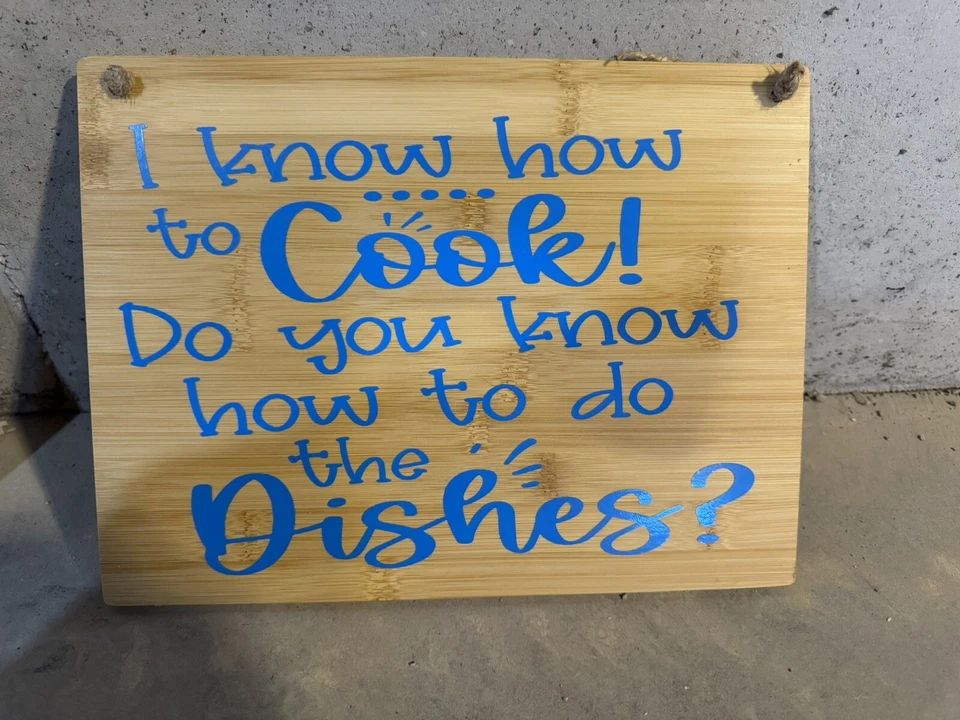 I know how
to Cook!
Do you know
how to do
the
Dishes?